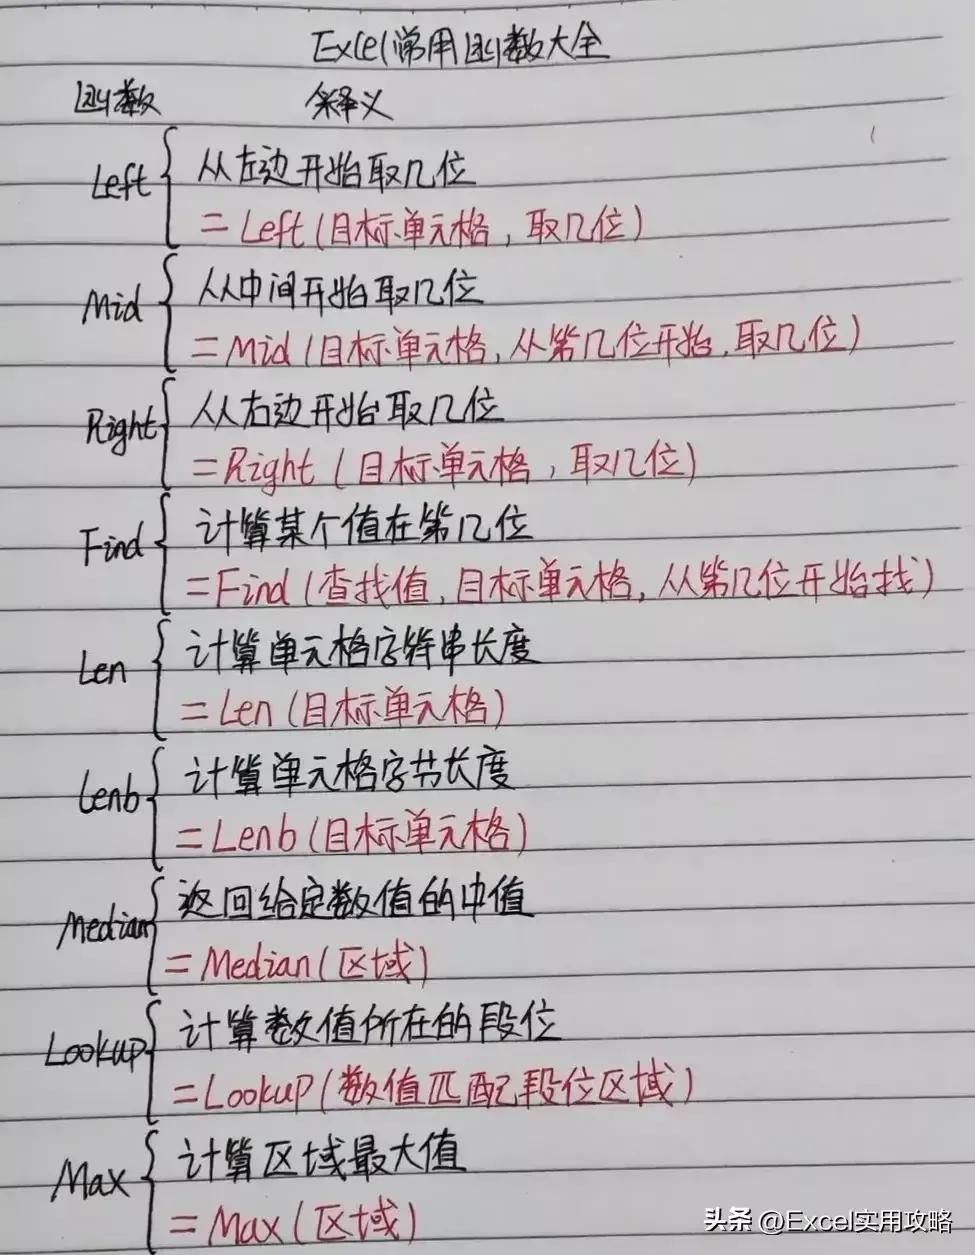 Excel常用函数大全
函数 释义
Left 从左边开始取几位
=Left(目标单元格,取几位)
Mid 从中间开始取几位
=Mid(目标单元格,从第几位开始,取几位)
Right 从右边开始取几位
=Right(目标单元格,取几位)
Find 计算某个值在第几位
=Find(查找值,目标单元格,从第几位开始找)
Len 计算单元格字符串长度
=Len(目标单元格)
Lenb 计算单元格字节长度
=Lenb(目标单元格)
Median 返回给定数值的中值
=Median(区域)
Lookup 计算数值所在的段位
=Lookup(数值匹配段位区域)
Max 计算区域最大值
=Max(区域)
头条 @Excel实用攻略